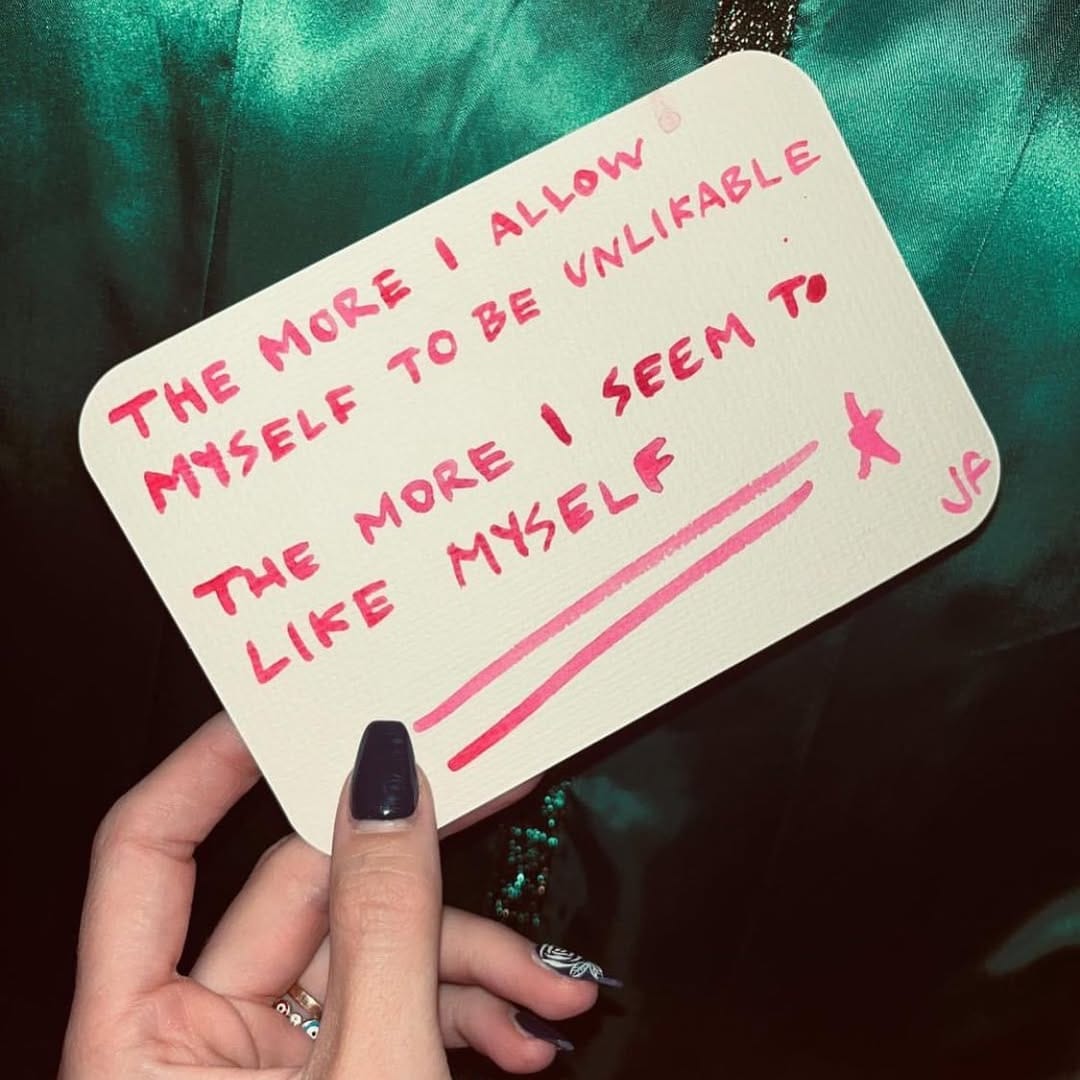 THE MORE I ALLOW
MYSELF TO BE UNLIKABLE
THE MORE I SEEM TO
LIKE MYSELF
JF